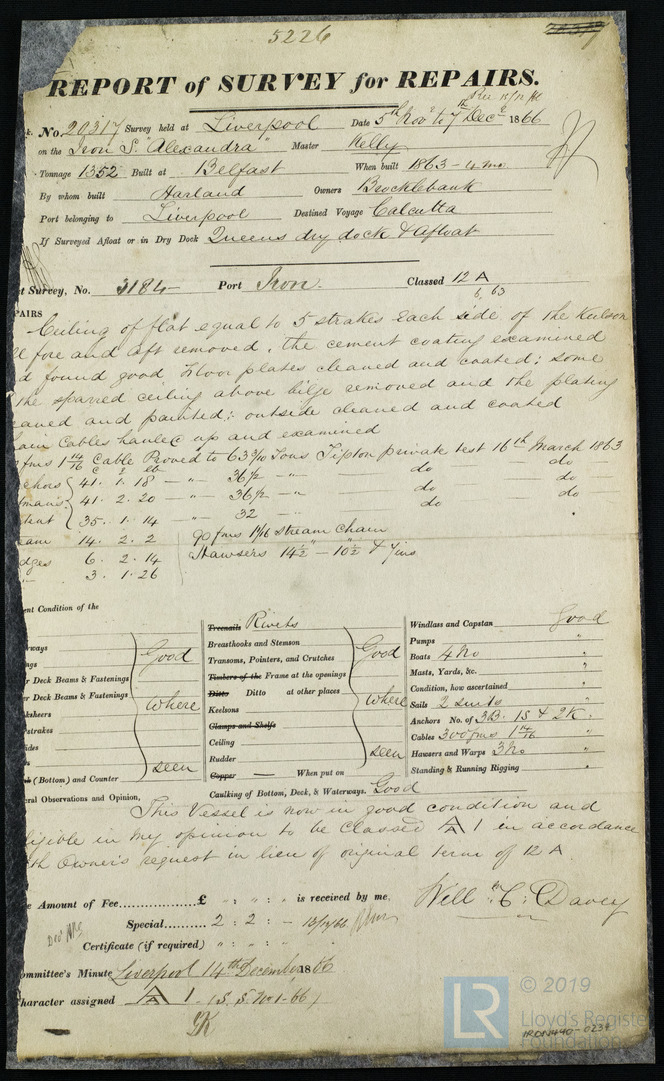 5226
REPORT of SURVEY for REPAIRS.
No. 20317 Survey held at Liverpool Date 5th Novr to 7th Decr 1866
on the Iron S. "Alexandra" Master Kelly
Tonnage 1352 Built at Belfast When built 1863 - 4 mo.
By whom built Harland Owners Brocklebank
Port belonging to Liverpool Destined Voyage Calcutta
If Surveyed Afloat or in Dry Dock Queens dry dock & afloat
t Survey, No. 3184 Port Iron. Classed 12 A
6, 63
PAIRS
Ceiling of flat equal to 5 strakes each side of the Keelson
fore and aft removed, the cement coating examined
d found good, Floor plates cleaned and coated; some
the sparred ceiling above bilge removed and the plating
eaned and painted; outside cleaned and coated
ain Cables hauled up and examined
fms 1 14/16 Cable Proved to 63 3/10 Tons Tipton private test 16th March 1863
c q lb
chors 41. 1. 18 - " - 36 1/2 - " do do
tmans 41. 2. 20 - " - 36 1/2 - " do do
35. 1. 14 - " - 32 - " do
eam 14. 2. 2 90 fms 1 1/16 stream chain
dges 6. 2. 14 Hawsers 14 1/2 - 10 1/2 & 7 ins
3. 1. 26
ent Condition of the
rways
ngs
r Deck Beams & Fastenings
er Deck Beams & Fastenings
ksheers
strakes
ides
s
(Bottom) and Counter
Good where seen
Treenails Rivets
Breasthooks and Stemson
Transoms, Pointers, and Crutches
Timbers of the Frame at the openings
Ditto Ditto at other places
Keelsons
Clamps and Shelfs
Ceiling
Rudder
Copper — When put on
Good where seen
Caulking of Bottom, Deck, & Waterways. Good
Windlass and Capstan Good
Pumps "
Boats 4 No "
Masts, Yards, &c. "
Condition, how ascertained "
Sails 2 suits "
Anchors No. of 3B. 1S & 2K. "
Cables 300 fms 1 14/16 "
Hawsers and Warps 3 No "
Standing & Running Rigging "
ral Observations and Opinion,
This Vessel is now in good condition and
ligible in my opinion to be Classed A/A 1 in accordance
th Owner's request in lieu of original term of 12 A
Will C. Davey
e Amount of Fee £ " : " : " is received by me,
Special 2 : 2 : - 13/12/66
Certificate (if required) " : " : "
ommittee's Minute Liverpool 14th December 1866
haracter assigned A/A 1 (S. S. No 1-66)
LR
© 2019
Lloyd's Register
Foundation
IRON440-0234